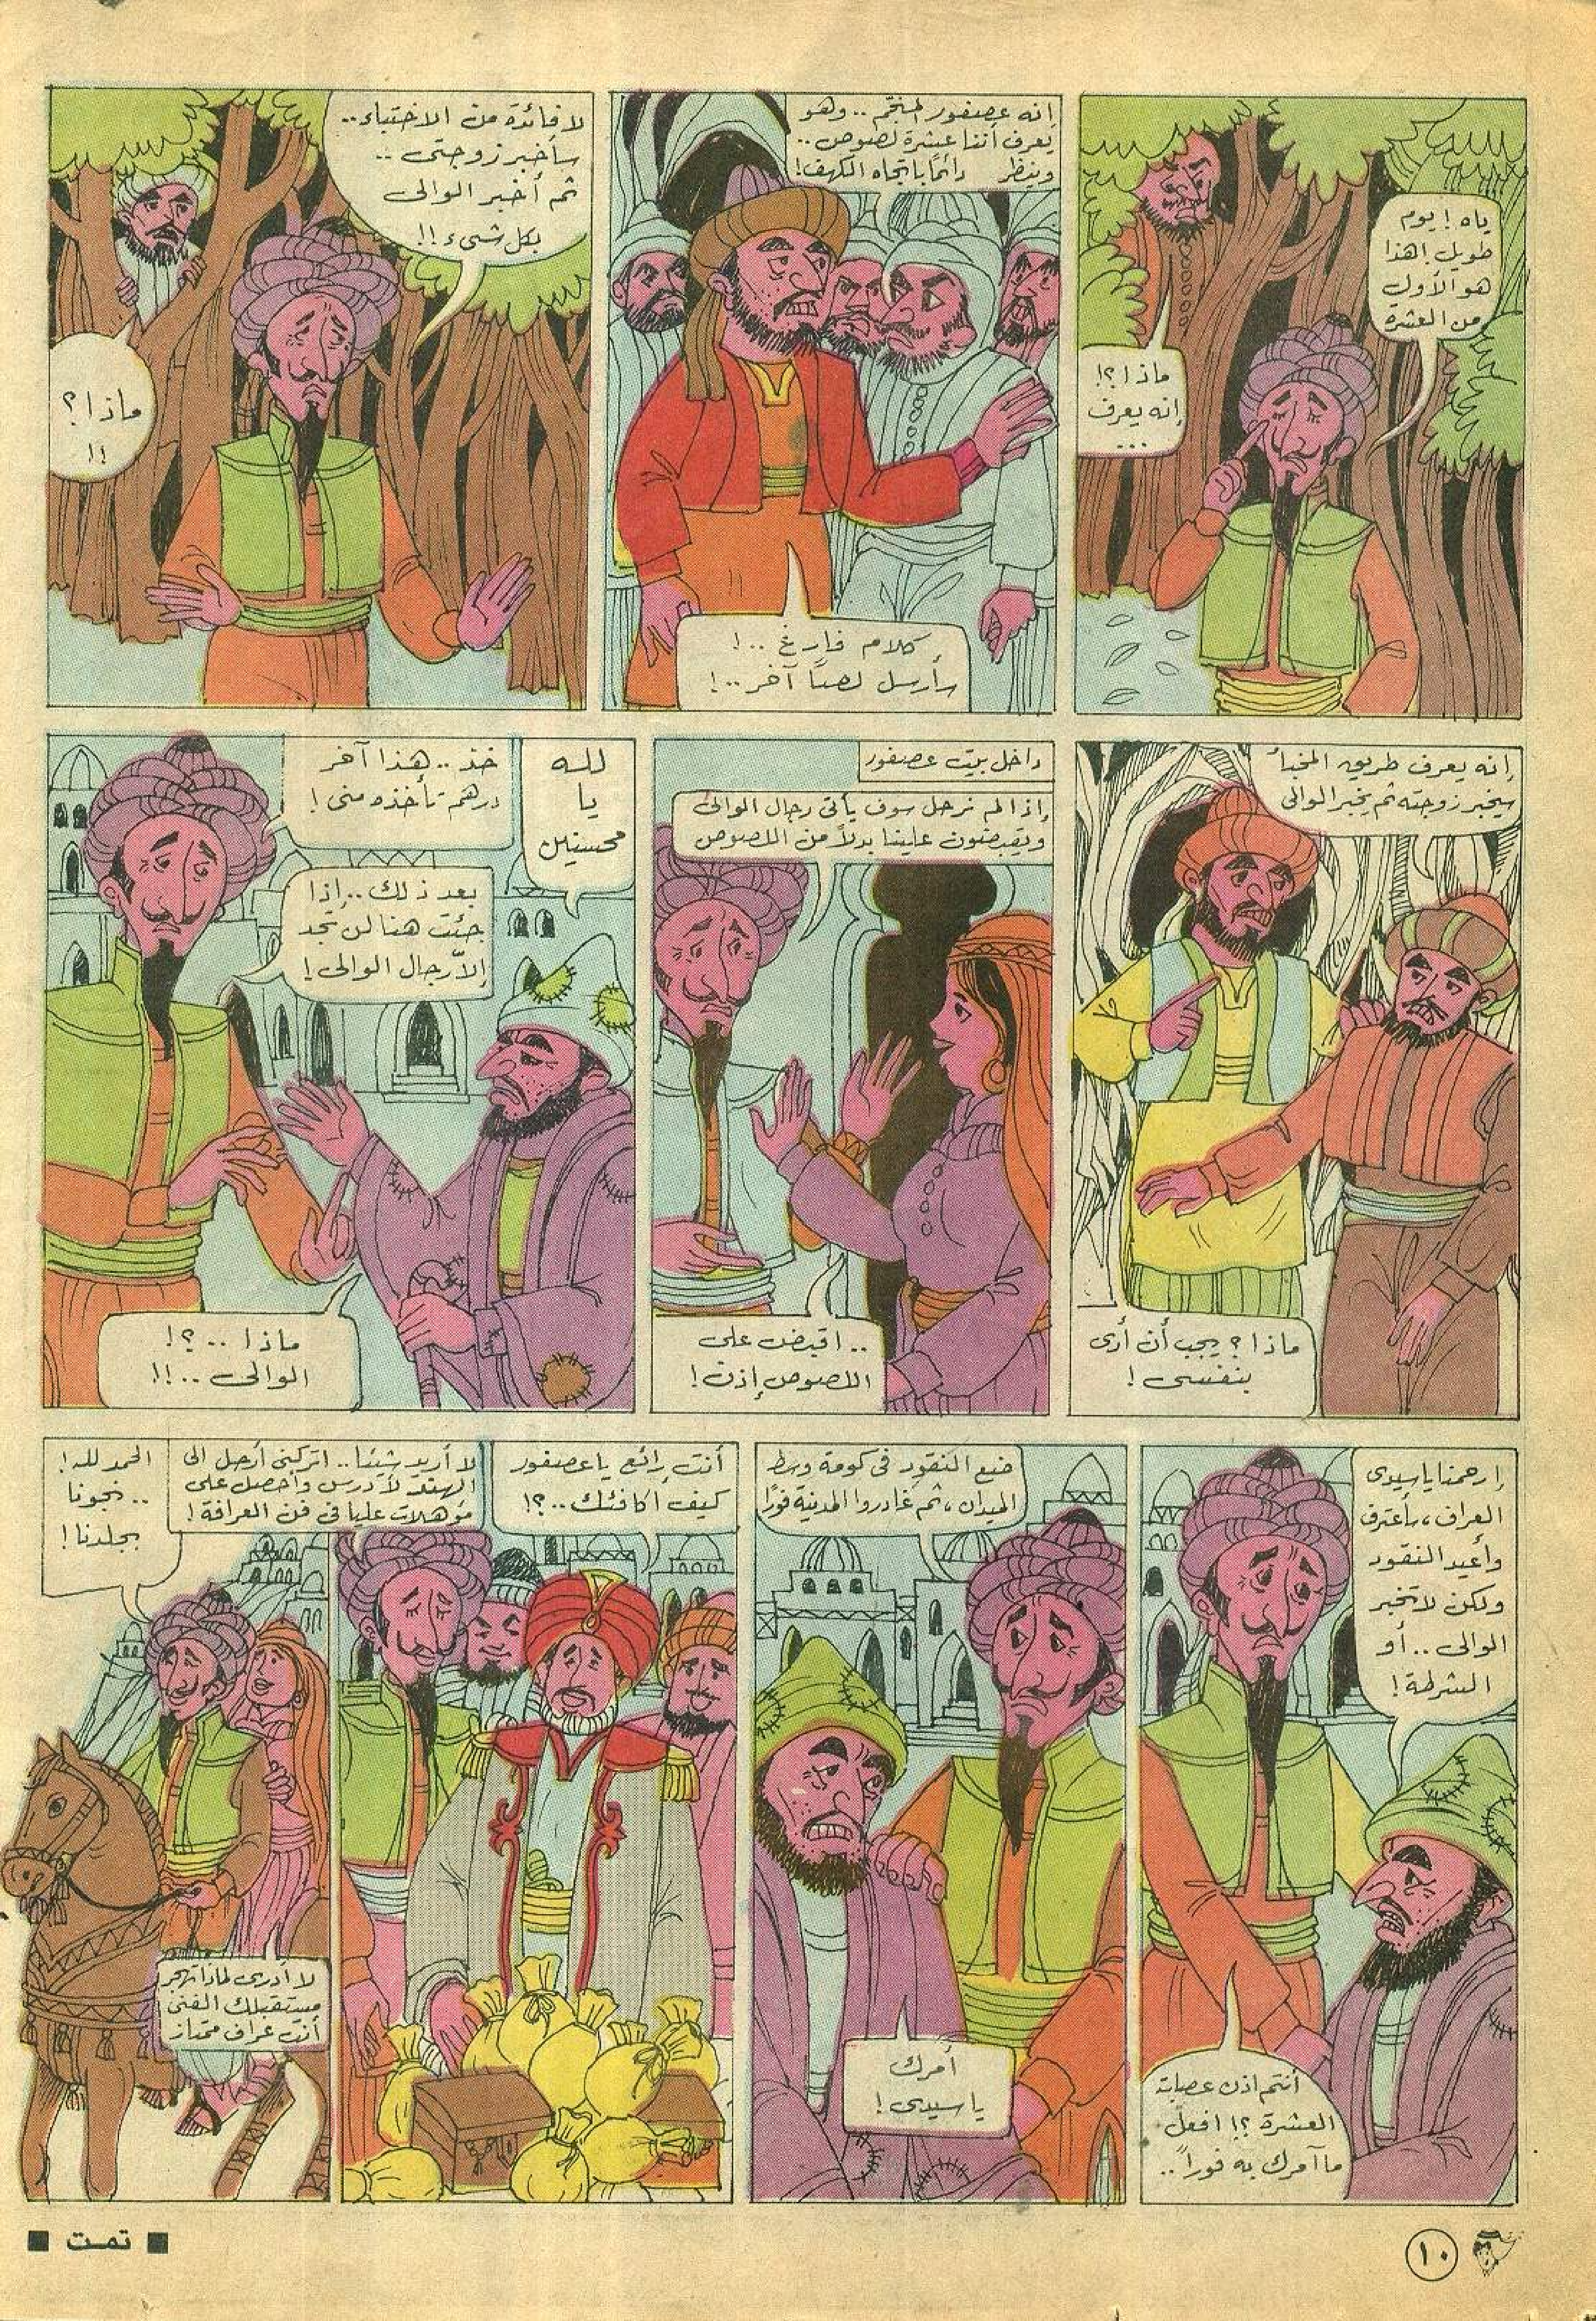 ياه ! يوم
طويل ! هذا
هو الأول
من العشرة
ماذا ؟!
إنه يعرف
...
إنه عصفور المنجّم .. وهو
يعرف أننا عشرة لصوص ..
وينظر دائماً باتجاه الكهف !
كلام فارغ .. !
سأرسل لصاً آخر .. !
لا فائدة من الاختباء ..
سأخبر زوجتى ..
ثم أخبر الوالى
بكل شىء !!
ماذا ؟
!!
إنه يعرف طريق المخبأ
سيخبر زوجته ثم يخبر الوالى
ماذا ؟ يجب أن أرى
بنفسى !
داخل بيت عصفور
إذا لم نرحل سوف يأتى رجال الوالى
ويقبضون علينا بدلاً من اللصوص
.. اقبض على
اللصوص إذن !
لله
يا
محسنين
خذ .. هذا آخر
درهم تأخذه منى !
بعد ذلك .. إذا
جئت هنا لن تجد
إلاّ رجال الوالى !
ماذا .. ؟!
الوالى .. !!
إرحمنا يا سيدى
العراف ، سأعترف
وأعيد النقود
ولكن لا تخبر
الوالى .. أو
الشرطة !
أنتم اذن عصابة
العشرة ؟! افعل
ما آمرك به فوراً ..
ضع النقود فى كومة وسط
الميدان ، ثم غادروا المدينة فوراً
أمرك
يا سيدى !
أنت رائع يا عصفور
كيف أكافئك .. ؟!
لا أريد شيئا .. اتركنى أرحل الى
الهند لأدرس وأحصل على
مؤهلات عليا فى فن العرافة !
الحمد لله !
.. نجونا
بجلدنا !
لا أدرى لماذا تهجر
مستقبلك الفنى
أنت عراف ممتاز
١٠
■ تمت ■